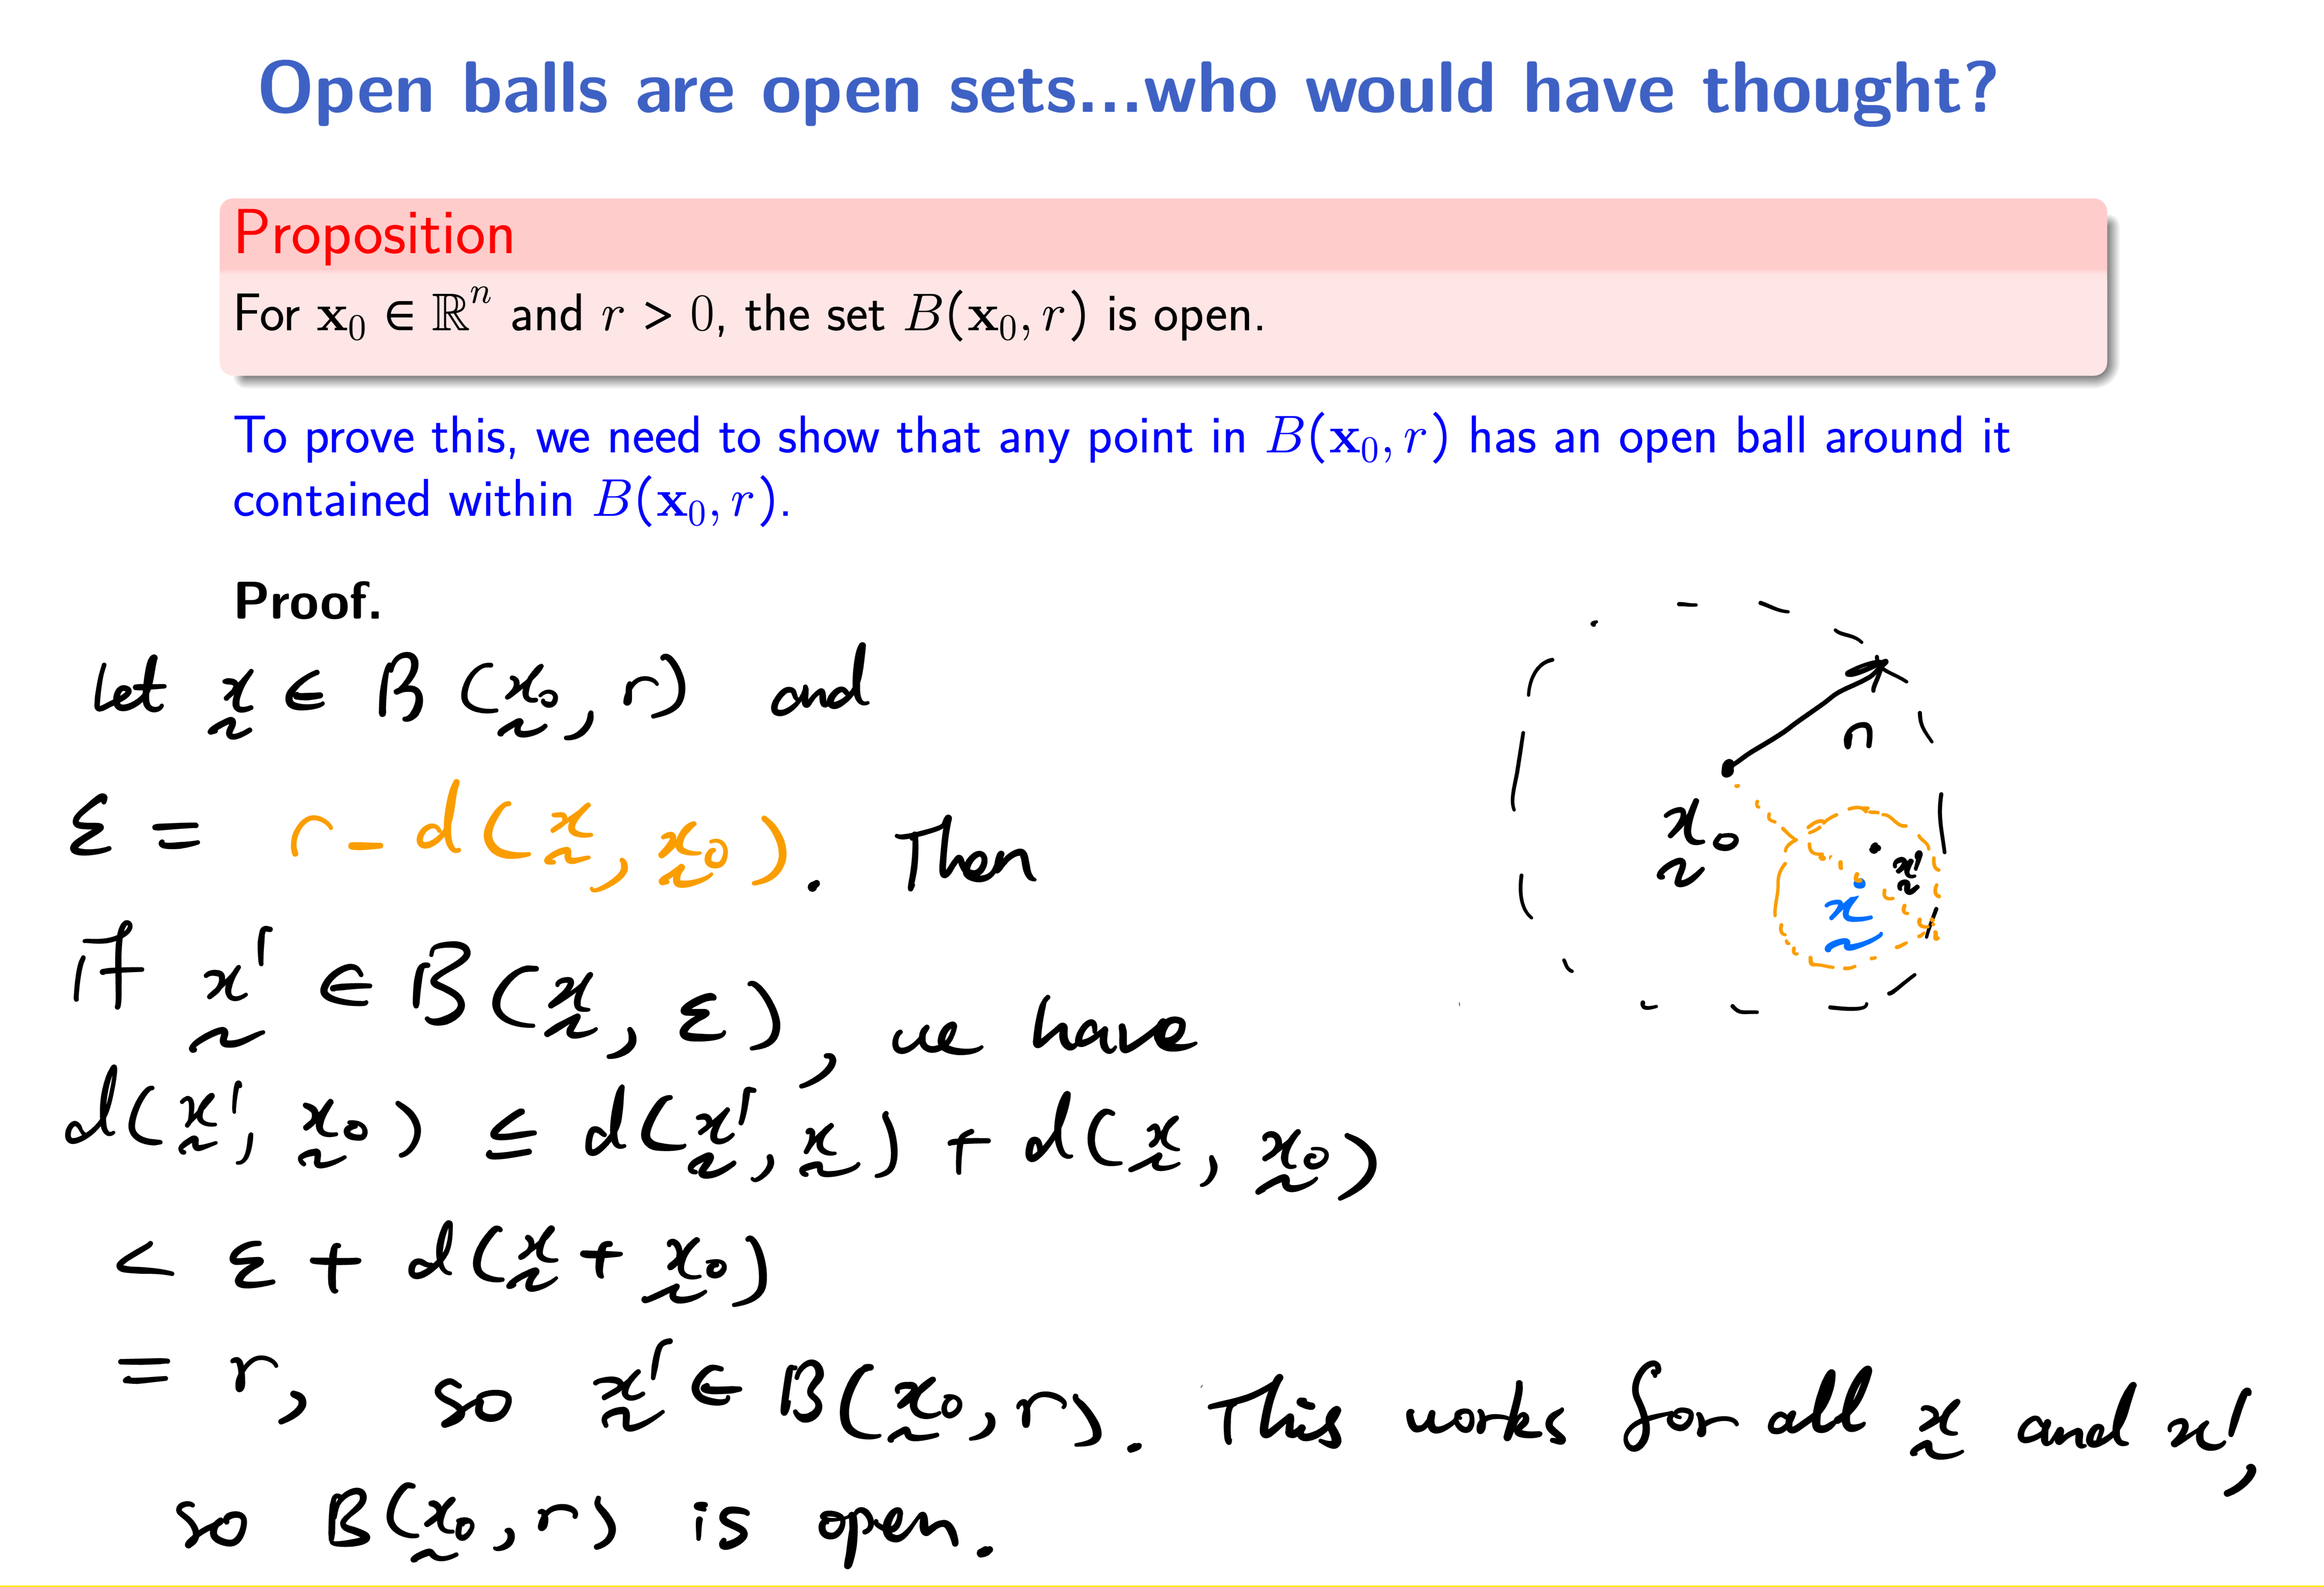 Open balls are open sets...who would have thought?
Proposition
For x₀ ∈ ℝⁿ and r > 0, the set B(x₀, r) is open.
To prove this, we need to show that any point in B(x₀, r) has an open ball around it
contained within B(x₀, r).
Proof.
Let x̰ ∈ B (x̰₀, r) and
ε = r - d(x̰, x̰₀). Then
if x̰' ∈ B(x̰, ε), we have
d(x̰', x̰₀) ≤ d(x̰', x̰) + d(x̰, x̰₀)
< ε + d(x̰ + x̰₀)
= r, so x̰' ∈ B(x̰₀, r). This works for all x̰ and x',
so B(x̰₀, r) is open.
r
x̰₀
x̰'
x̰